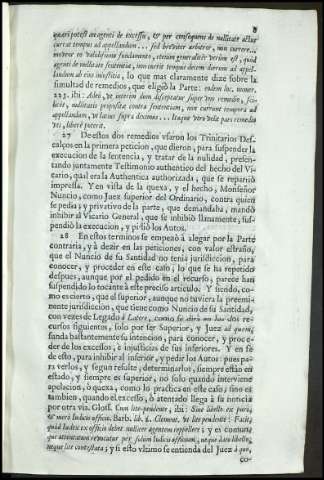 8
quari potest an agenti de excessu, & per consequens de nullitate actus
currat tempus ad appellandum.... sed breviter arbitror, non currere...
moveor ex validissimo fundamento, etenim generaliter verum est, quod
agenti de nullitate sententiæ, non currit tempus decem dierum ad appel-
landum ab eius iniustitia, lo que mas claramente dize sobre la
simultad de remedios, que eligiò la Parte: eodem loc. numer.
223. ibi: Adeò, ut interim dum disceptatur super uno remedio, sci-
licèt, nullitatis proposita contra sententiam, non currunt tempora ad
appellandum, ut latius supra diximus... Itaque vtroʋelit pars remedio
uti, liberè poterit.
27 De estos dos remedios vsaron los Trinitarios Des-
calços en la primera peticion, que dieron, para suspender la
execucion de la sentencia, y tratar de la nulidad, presen-
tando juntamente Testimonio authentico del hecho del Vi-
cario, qual era la Authentica authorizada, que se repartiò
impressa. Y en vista de la quexa, y el hecho, Monseñor
Nuncio, como Juez superior del Ordinario, contra quien
se pedia, y privativo de la parte, que demandaba, mandò
inhibir al Vicario General, que se inhibiò llanamente, sus-
pendiò la execucion, y pidiò los Autos.
28 En estos terminos se empezò à alegar por la Parte
contraria, y à dezir en las peticiones, con valor estraño,
que el Nuncio de su Santidad no tenia jurisdiccion, para
conocer, y proceder en este caso; lo que se ha repetido
despues, aunque por el pedido en el recurso, parece han
suspendido lo tocante à este preciso articulo. Y siendo, co-
mo es cierto, que el superior, aunque no tuviera la preemi-
nente jurisdiccion, que tiene como Nuncio de su Santidad,
con vezes de Legado à Latere, como se dirà en los dos re-
cursos siguientes, solo por ser Superior, y Juez ad quem,
funda bastantemente su intencion, para conocer, y proce-
der de los excessos, è injusticias de sus inferiores. Y en fè
de esto, para inhibir al inferior, y pedir los Autos: pues pa-
ra verlos, y segun resulte, determinarlos, siempre estàn en
estado, y siempre es superior, no solo quando interviene
apelacion, ò quexa, como lo practica en este caso; sino es
tambien, quando el excesso, ò atentado llega à su noticia
por otra via. Gloss. Cum lite pendente, ibi: Sine libello ex parte,
& merè Iudicis officio. Barb. lib. 2. Clement. ut lite pendente: Facit,
quod Iudex ex officio debet nullitèr agentem repellere; y es comun
que attentatum revocatur per solum Iudicis officium, neque dato libello,
neque lite contestata; y si esto vltimo se entienda del Juez à quo,
co-